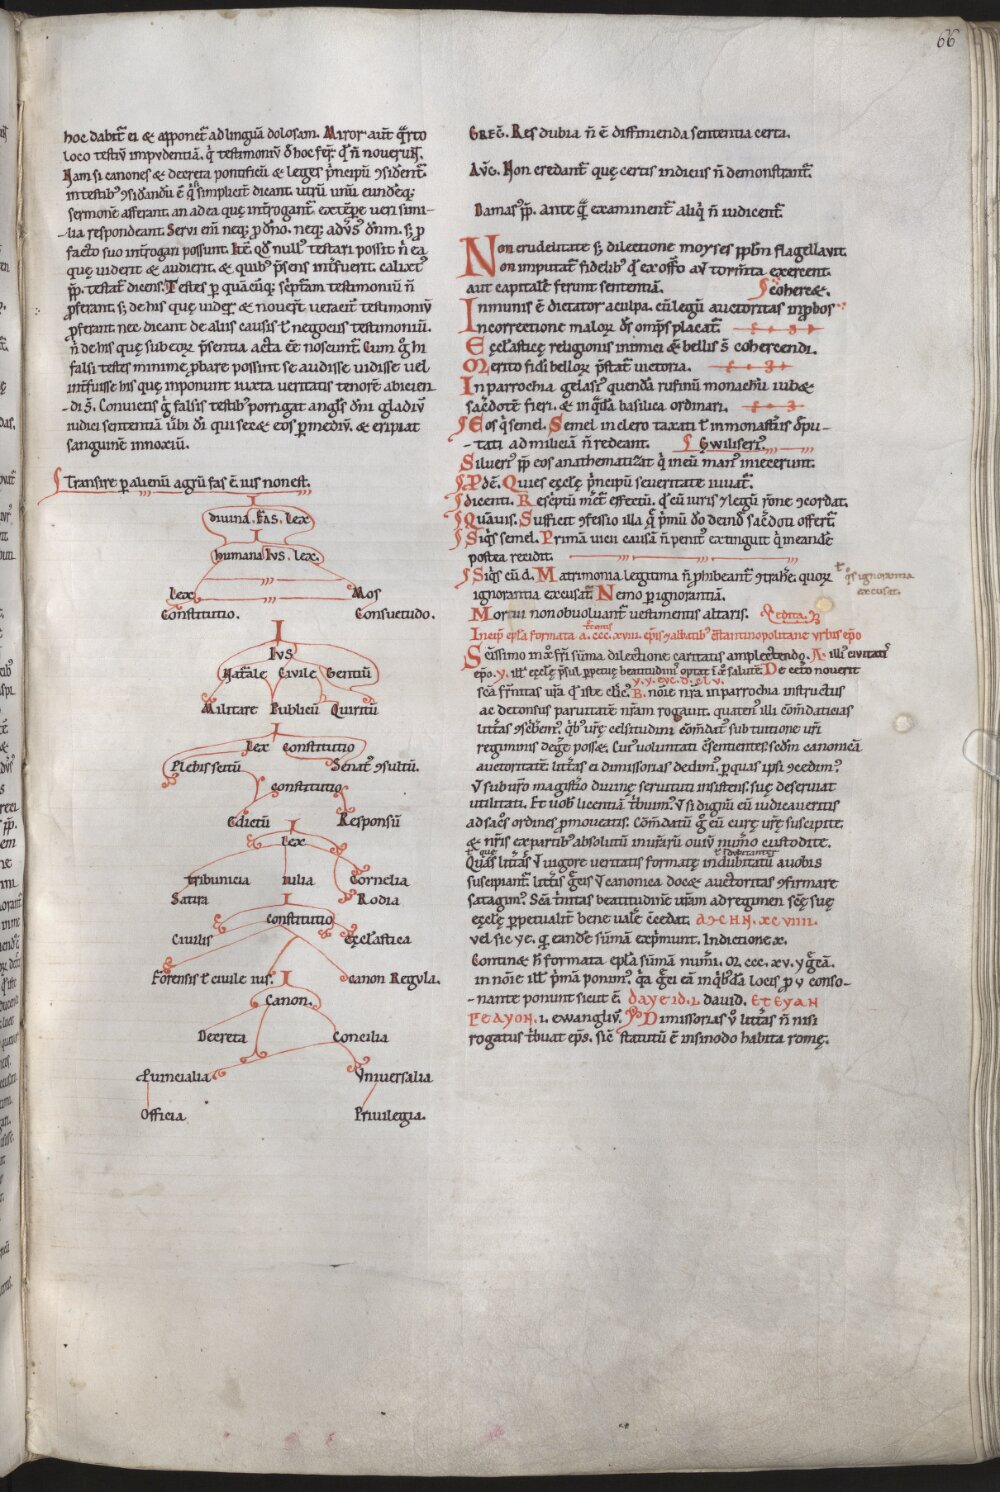 66
hoc. dabit̃ ei & apponet̃ ad linguā dolosam. Miror aut̄ q̄rto
loco testiū impudentiā. q̇ testimoniū
Nam si canones & decreta pontificū & leges p̄ncipū ꝯsident̃.
in testibꝰ ꝯsid̃andū ē q̇ simplicit̃ dicant. utrū unū eundēq;
sermonē afferant. an ad ea quę int̃rogant̃. extēpe ueri simi-
-lia respondeant. Serui eni neq; ꝓ dn̄o. neq; aduꝰ dn̄m. sꝫ ꝓ
facto suo int̃rogari possunt. Itē. qd̄ nullꝰ testari possit n̄ ea
quę uiderit & audierit. & quibꝰ p̄sens int̃fuerit. calixtꝰ
pp̄. testat̃ dicens. Testes ꝑ quācūq; sc̄ptam testimoniū n̄
ꝓferant. sꝫ de his quę uider̄ & nouer̄t. ueracit̃ testimoniū
ꝓferant. nec dicant de aliis causis ł negociis testimoniū.
n̄ de his quę sub eor̄ p̄sentia acta ēē noscunt̃. Cum ḡ hi
falsi testes minime ꝓbare possint se audisse uidisse uel
int̃fuisse his quę inponunt iuxta ueritatis tenorē abicien
-di s̄. Conuictis ḡ falsis testibꝰ porrigat angl̄s dn̄i gladiū
iudici sententiā ubi di qui secæ eos ꝑ mediū. & eripiat
sanguinē innoxiū.
Transire ꝑ alienū agrū fas ē. ius non est.
diuina. Fas. Lex
humana Ius. Lex.
Lex Mos
Constitutio. Consuetudo.
Ius
Nat̃ale Ciuile Gentiū
Militare Publicū Quiritū
Lex Constitutio
Plebis scitū Senatꝰ ꝯsultū.
Constitutio
Edictū Responsū
Lex
tribunicia iulia Cornelia
Satira Rodia
Constitutio
Ciuilis Ęcl̄astica
Forensis ł ciuile ius. Canon Regula.
Canon.
Decreta Concilia
Ꝓuincialia Vniuersalia
Officia Priuilegia.
GREḠ. Res dubia n̄ ē diffinienda sententia certa.
AVḠ. Non credant̃ quę certis indiciis n̄ demonstrant̃.
Damasꝰ pp̄. ante q̄ examinent̃ aliq̇ n̄ iudicent̃.
Non crudelitate sꝫ dilectione moyses pp̄lm flagellauit.
Non imputat̃ fidelibꝰ q̇ ex offo aū torm̃ta exercent.
aut capitalē ferunt sententiā. cohercæ.
Inmunis ē dictator a culpa. cū legū auctoritas inꝓbos
Incorrectione malor̄ d̄s omp̄s placat̃.
Ęcl̄asticę religionis inimici &̄ bellis s̄ cohercendi.
Merito fidi bellor̄ p̄stat̃ uictoria.
In parrochia gelasiꝰ quendā rufinū monachū iubæ
sac̃dotē fieri. & in q̇dā basilica ordinari.
Eos q̇ semel. Semel in clero taxati ł in monast̃iis dp̄u-
-tati ad miliciā n̄ redeant. Gwiliserꝰ
Siluerꝰ pp̄ eos anathematizat q̇ in eū manꝰ iniecerunt.
Pdē. Quies ęcl̄ę p̄ncipū seueritate iuuat̃.
dicenti. Resc̄ptū m̄ct̃ effectū. q̇ cū iuris & legū rōne ꝯcordat.
Quāuis. Sufficit ꝯfessio illa q̄ p̄mū do deind̄ sac̃doti offert̃.
Siq̇s semel. Primā uicii causā n̄ penitꝰ extinguit q̇ in eandē
postea recidit.
Siq̇s cū d. Matrimonia legitima n̄ ꝓhibeant̃ ꝯtrahe. quor̄ ł q̇s ignorantia
ignorantia excusat̃. Nemo ꝑ ignorantiā. excusat.
Mortui non obuoluant̃ uestimentis altaris. edita.
Incip̄ epl̄a formata a. ccc. xviii. ep̄is ꝯstantinopolitane urbis ep̄o
Sc̄issimo mo fr̄i sūma dilectione caritatis amplectendo. A. illiꝰ ciuitatꝭ
ep̄o. y. illꝰ ęcl̄ę p̄sul ꝑpetuę beatitudinꝭ optat salutē. De cet̃o nouerit
sc̄a fr̄nitas ur̄a q̇ iste cl̄ic̄ B. nōie nr̄a in parrochia instructus
ac detonsus paruitatē nr̄am rogauit. quatenꝰ illi cōm̃daticias
litt̃as ꝯscb̄em̄. q̇bꝰ ur̄ę celsitudini cōm̃datꝰ sub tuitione ur̄i
regiminis degere possæ. Cuiꝰ uoluntati ꝯsentientes. sedm̄ canonicā
auctoritatē. litt̃as ei dimissorias dedimꝰ. ꝑ quas ipsi ꝯcedimꝰ
ut sub ur̄o magist̃io diuinę seruituti insistens. suę deseruiat
utilitati. Et uob̄ licentiā t̃buimꝰ. ut si dignū eū iudicaueritis
ad sac̄os ordines ꝓmoueatis. Cōm̃datū ḡ eū curę ur̄ę suscipite.
& nr̄is ex partibꝰ absolutū inur̄arū ouiū num̃o custodite.
Quas litt̃as ut uigore ueritatis formatę indubitatū a uobis
suscipiant̃. litt̃is grēis ut canonica docæ auctoritas ꝯfirmare
satagimꝰ. Sc̄a t̃nitas beatitudinē ur̄am ad regimen sc̄ę suę
ęcl̄ę ꝑpetualit̃ bene ualere cc̄edat. ΑΜΗΝ. xcviiii.
vel sic ye. q̇ eandē sūmā exp̄munt. Indictione x.
Continæ h̄ formata epl̄a sūmā num̃i. M. ccc. xv. y grēā.
in nōie illꝰ p̄mā ponimꝰ. q̇a grēi eā in q̇bꝰdā locis ꝓ v conso-
-nante ponunt sicut ē. ΔΑΥΕΙΔ. i. dauid. ΕΤΕΥΑΝ
ΓΕΛΥΟΝ. i. ewangliū. Dimissorias ū litt̃as n̄ nisi
rogatus t̃buat ep̄s. sic̄ statutū ē in sinodo habita romę.